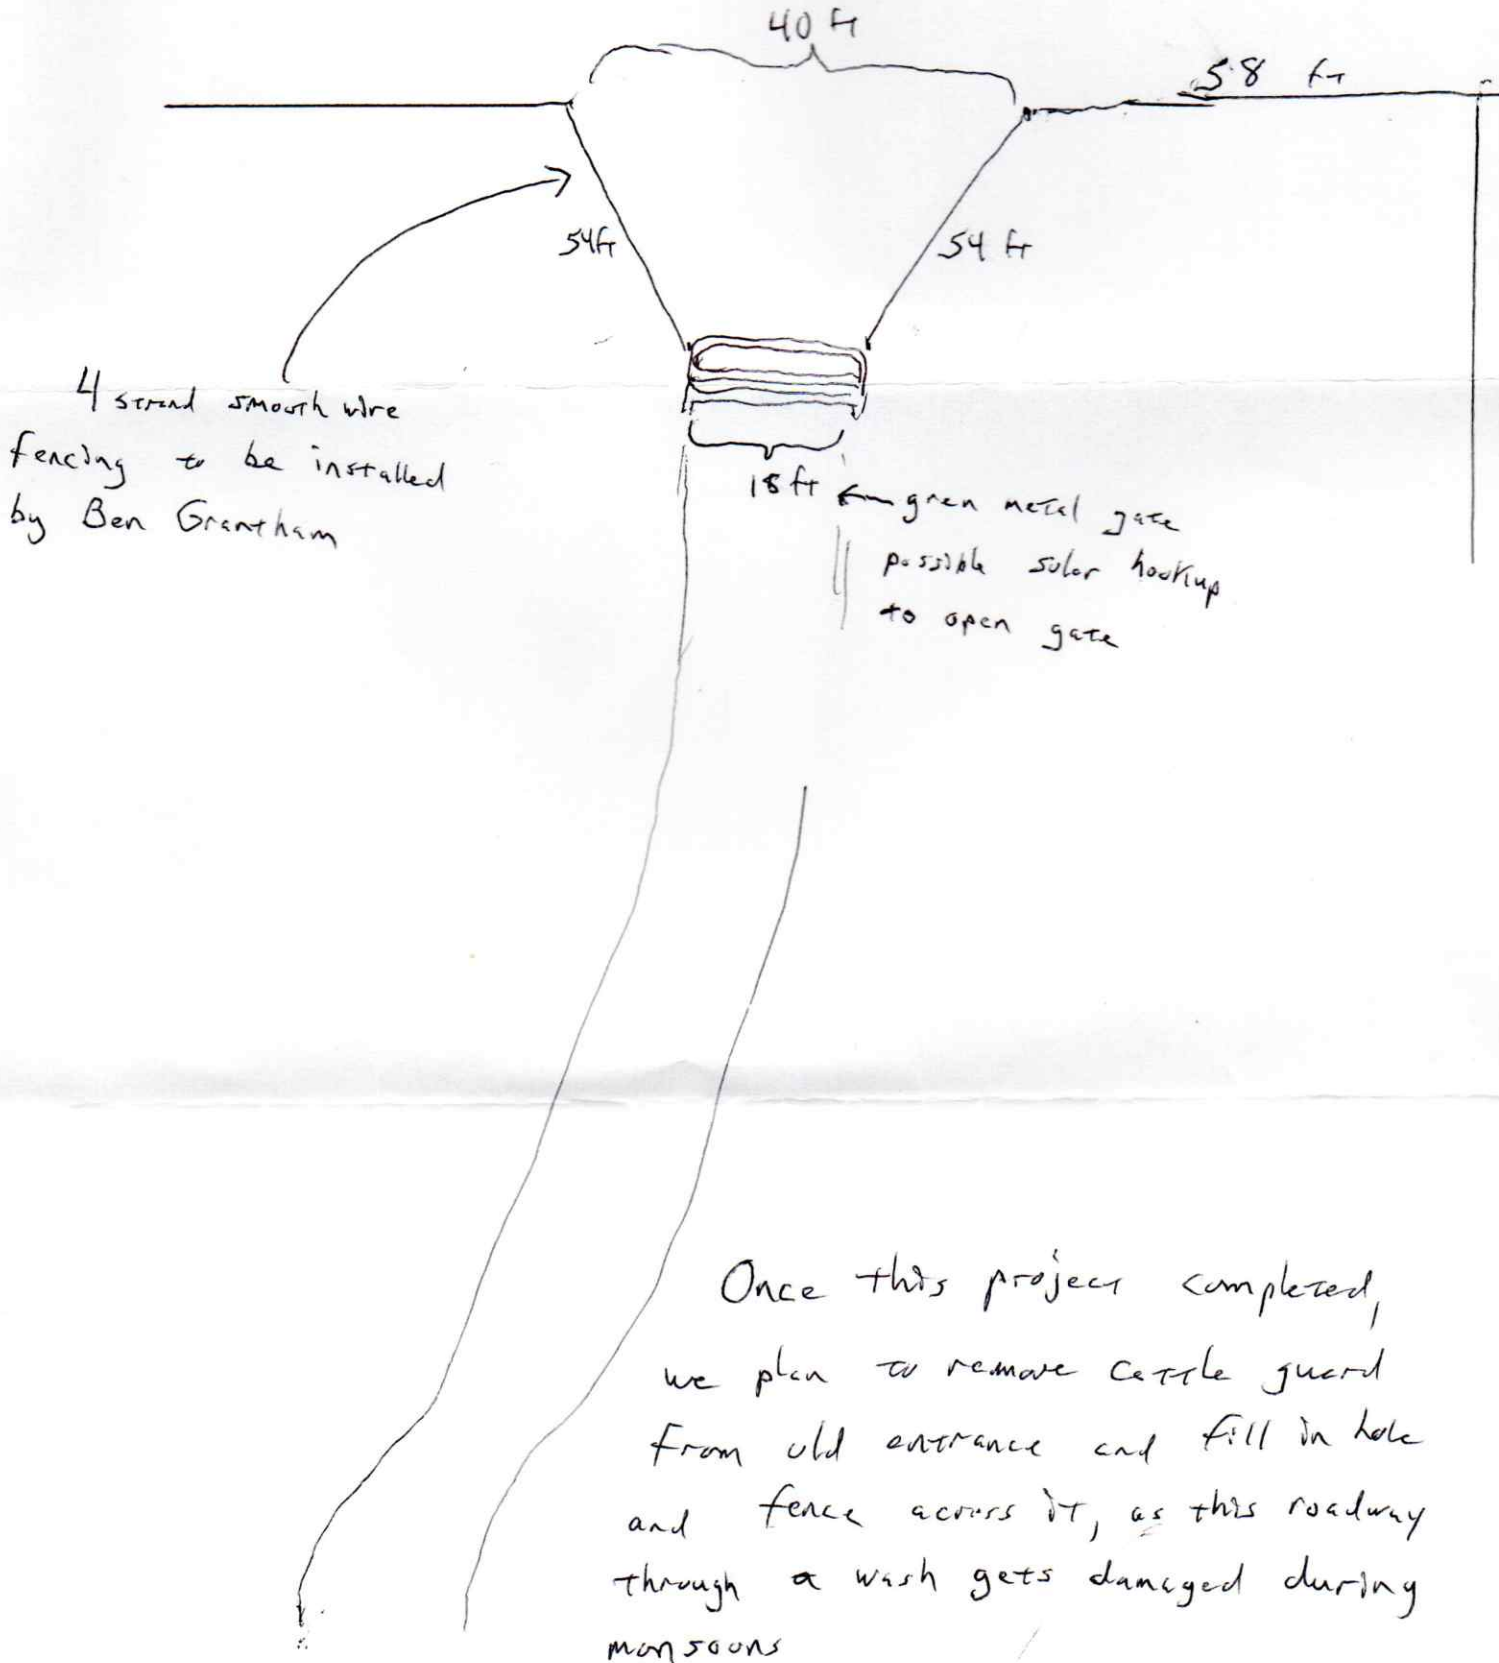 40 ft
58 ft
54ft
54 ft
4 strand smooth wire
fencing to be installed
by Ben Grantham
18 ft
gren metal gate
possible solar hookup
to open gate
Once this project completed,
we plan to remove cattle guard
from old entrance and fill in hole
and fence across it, as this roadway
through a wash gets damaged during
monsoons